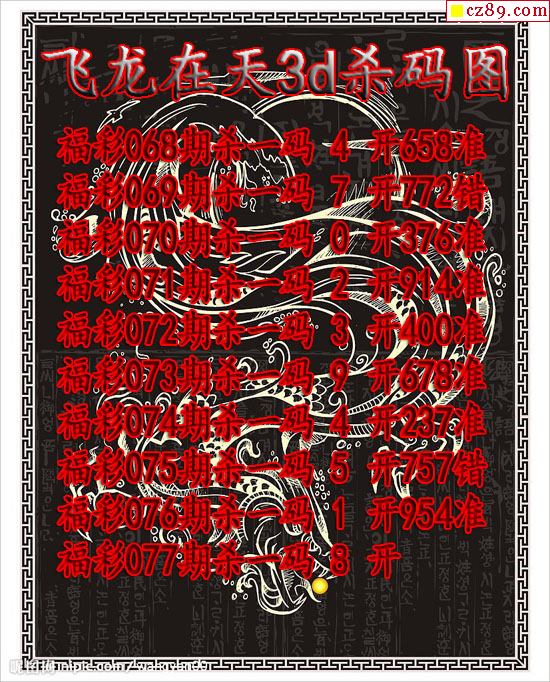 cz89.com
飞龙在天3d杀码图
福彩068期杀一码 4 开658准
福彩069期杀一码 7 开772错
福彩070期杀一码 0 开376准
福彩071期杀一码 2 开914准
福彩072期杀一码 3 开400准
福彩073期杀一码 9 开678准
福彩074期杀一码 4 开237准
福彩075期杀一码 5 开757错
福彩076期杀一码 1 开954准
福彩077期杀一码 8 开
昵图网